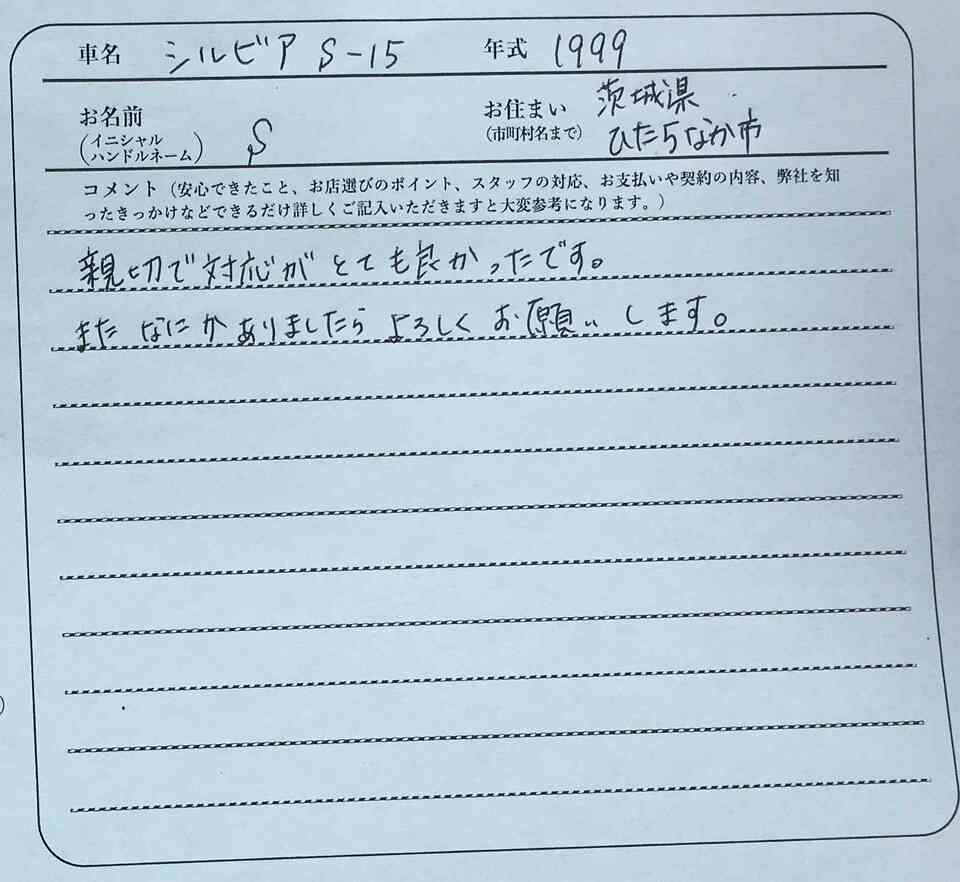 車名 シルビア S-15 年式 1999
お名前 (イニシャル ハンドルネーム) S お住まい (市町村名まで) 茨城県 ひたちなか市
コメント（安心できたこと、お店選びのポイント、スタッフの対応、お支払いや契約の内容、弊社を知
ったきっかけなどできるだけ詳しくご記入いただきますと大変参考になります。）
親切で対応がとても良かったです。
またなにかありましたらよろしくお願いします。